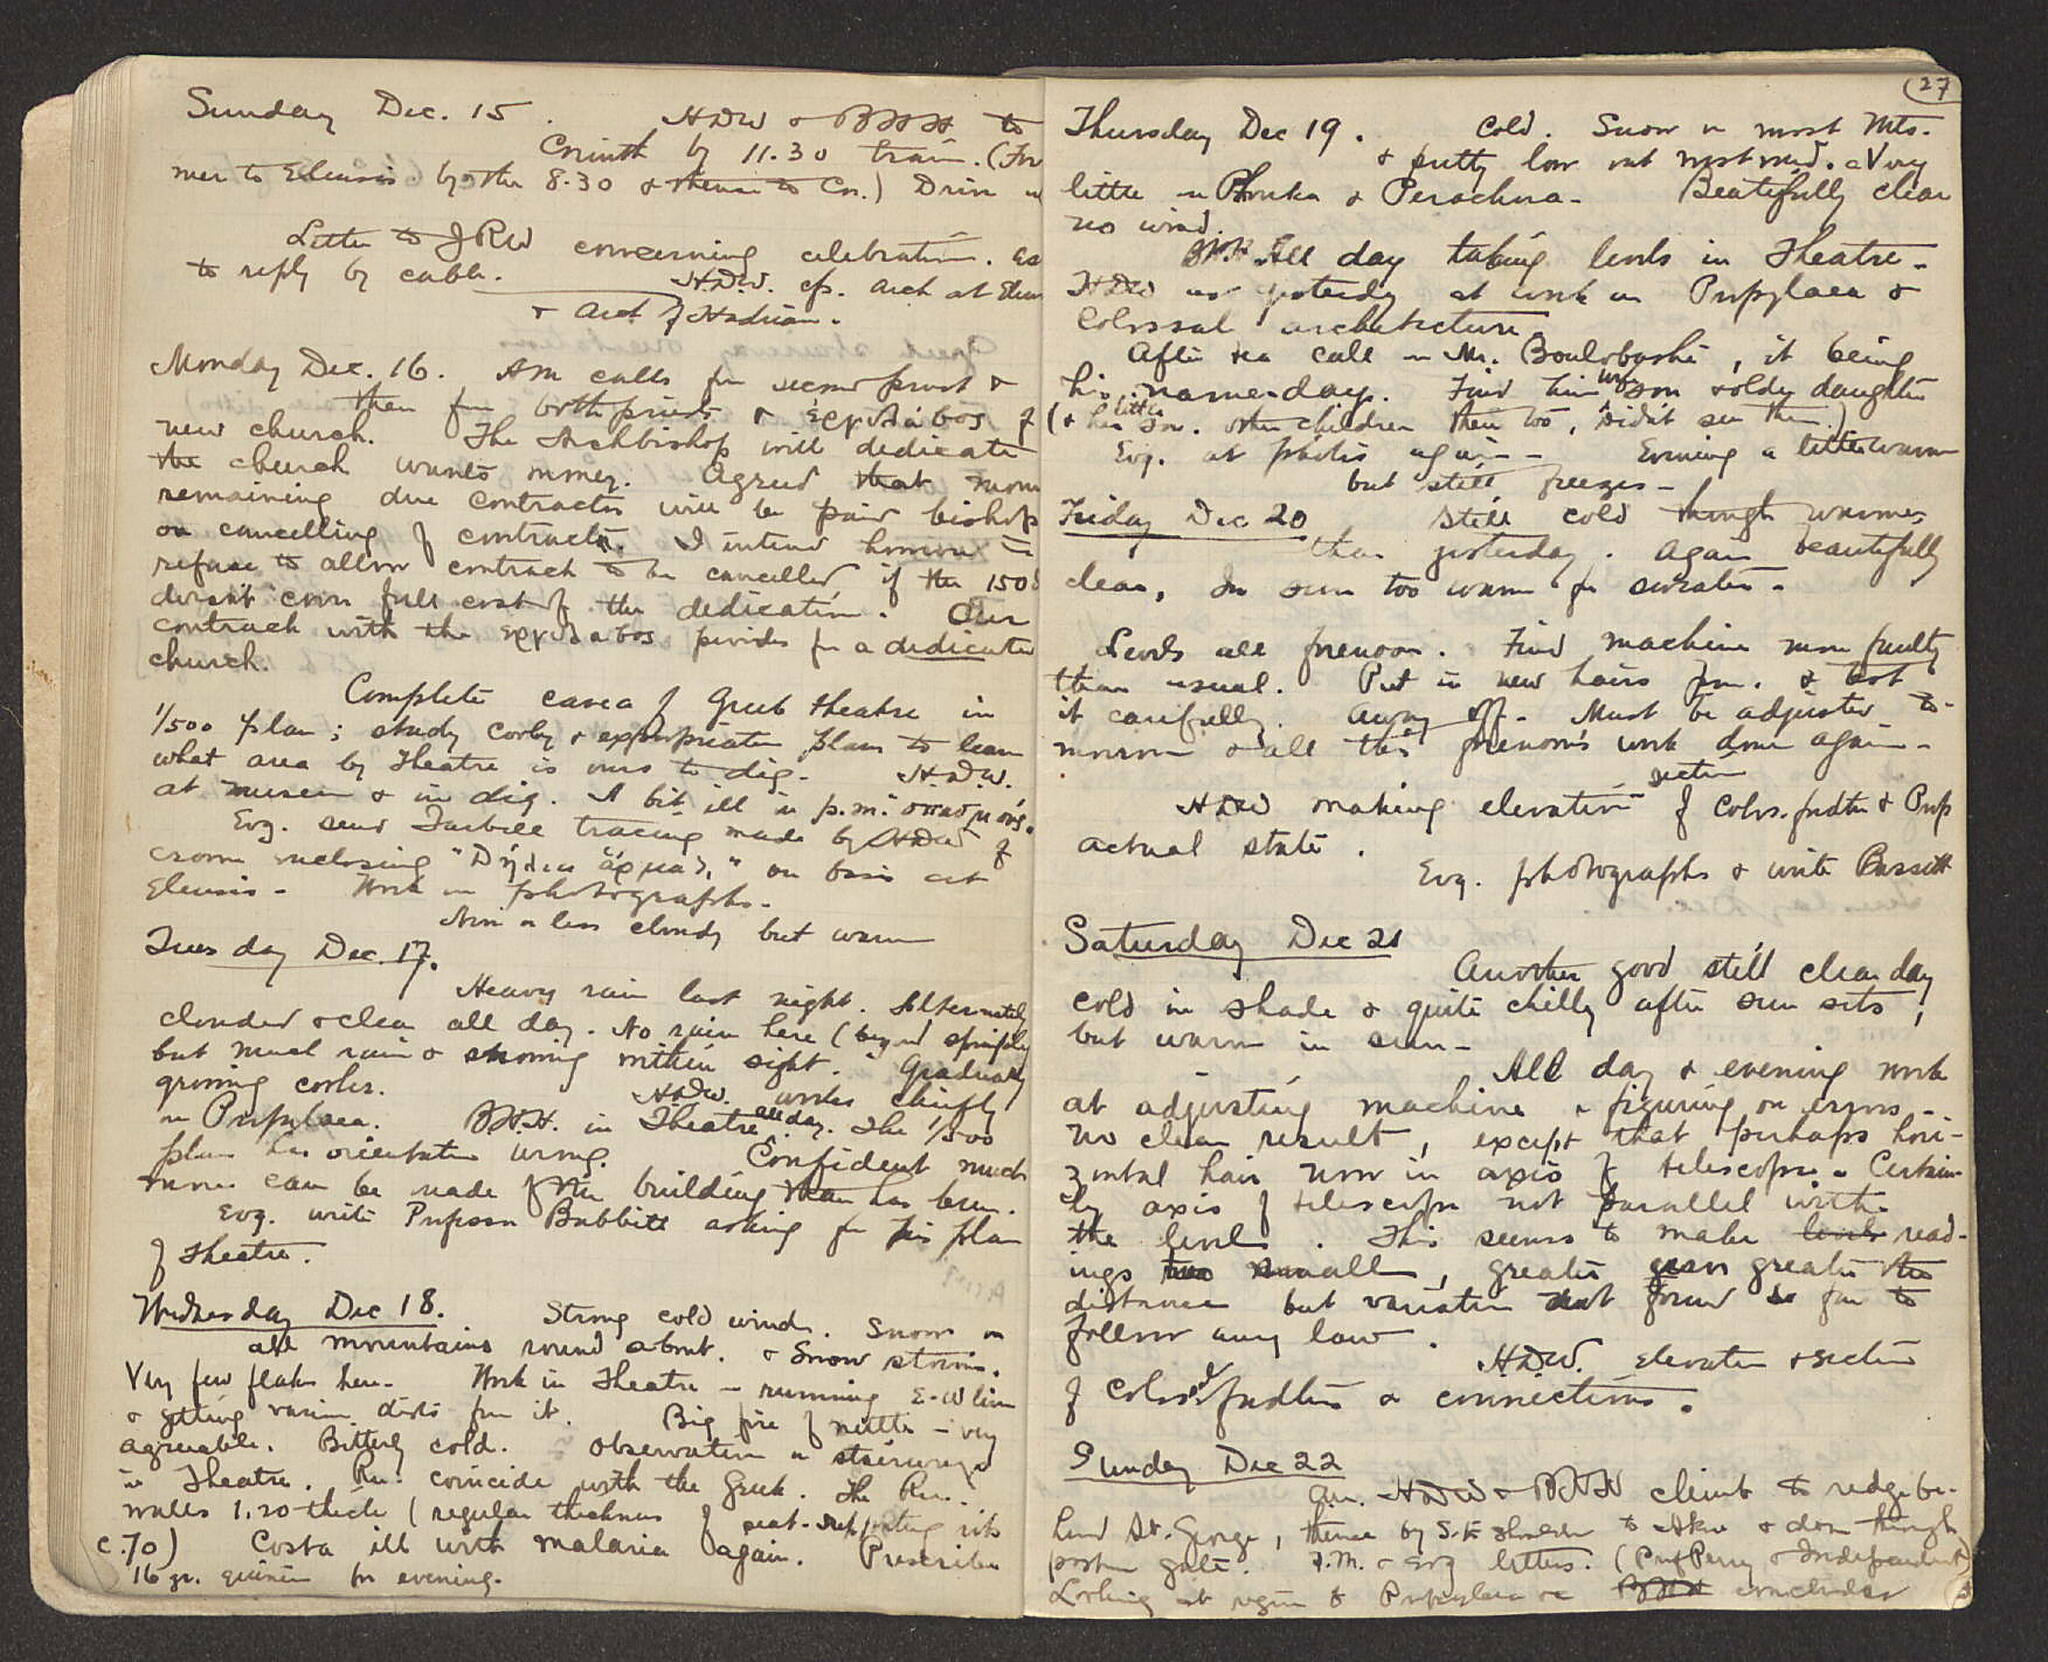 Sunday Dec. 15. HDW & BHH to
Corinth by 11.30 train. (For
mer to Eleusis by the 8.30 & thence to Co.) Drive
Letter to JRW concerning celebration.
to reply by cable. H.D.W. cp. Arch at
& Arch of Hadrian.
Monday Dec. 16. AM calls for second priest &
then for both priests & of
new church. The Archbishop will dedicate
the church wants money. Agreed that
remaining due contractor will be paid bishop
on cancelling of contract. I intend however to
refuse to allow contract to be cancelled if the 150
doesn't cover full cost of the dedication. Our
contract with the provides for a dedicated
church.
Complete cavea of Greek theatre in
1/500 plan; study & expropriation plans to learn
what area by Theatre is ours to dig. H.D.W.
at museum & in dig. A bit ill in p.m.
Evg. send tracing made by HDW of
crown enclosing on basis at
Eleusis - Work on photographs.
More or less cloudy but warm
Tuesday Dec. 17.
Heavy rain last night. Alternately
clouded & clear all day. No rain here (beyond
but much rain & snowing within sight. Gradually
growing cooler. H.D.W. works chiefly
on Propylaea. B.H.H. in Theatre all day. The 1/500
plan has orientation wrong. Confident much
more can be made of the building than has been.
Evg. write Professor Babbitt asking for his plan
of Theatre.
Wednesday Dec 18. Strong cold winds. Snow on
all mountains round about. & Snow storms.
Very few flakes here - Work in Theatre - running E-W line
& getting various dists from it. Big fire of - very
agreeable. Bitterly cold. Observation on stairways
in Theatre. Ro. coincide with the Greek. The Ro.
walls 1.20 thick (regular thickness of seat-supporting
c.70) Costa ill with malaria again. Prescribe
16 gr. quinine for evening.
27
Thursday Dec 19. Cold. Snow on most Mts.
& pretty low out westward. Very
little on Phouka & Perachora - Beatifully clear
no wind.
BHH. All day taking levels in Theatre -
HDW as yesterday at work on Propylaea &
Colossal architecture
After tea call on Mr. , it being
his names-day. Find him wife son & oldest daughter
(& her little son. Other children there too, didn't see them.)
Evg. at photos again - Evening a little warmer
but still freezes -
Friday Dec 20 Still cold though warmer
than yesterday. Again beautifully
clear, In sun too warm for sweater.
Levels all forenoon. Find machine more faulty
than usual. Put in new hairs & test
it carefully. Away off - Must be adjusted to-
morrow & all this forenoon's work done again -
HDW making elevation section of Colos. & Prop
actual state.
Evg. photographs & write Bassett
Saturday Dec 21
Another good still clear day
cold in shade & quite chilly after sun sets,
but warm in sun -
All day & evening work
at adjusting machine & figuring on errors -
no clear result, except that perhaps hori-
zontal hair now in axis of telescope - Certain-
ly axis of telescope not parallel with
the level. This seems to make levels read-
ings too small, greater greater the
distance but variation not found so far to
follow any law.
H.D.W. Elevation & section
of Colossal & connections.
Sunday Dec 22
am. HDW & BHH climb to ridge be-
hind St. George, thence by S.E. shoulder to Akro & down through
postern gate. P.M. & evg letters. (Prof Perry & Independent)
Looking at region of Propylaea BHH concludes